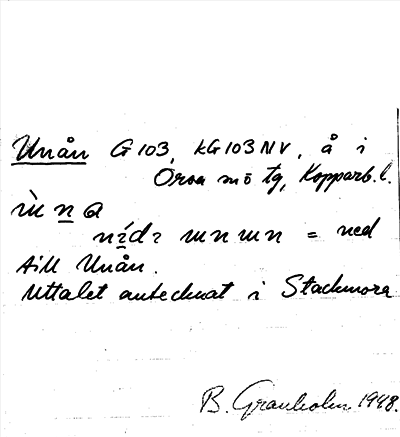 Unån G 103, kG103NV, å i
Orsa sn ö tg, Kopparb. l.
ned
till Unån.
Uttalet antecknat i Stackmora
B. Granholm 1948.